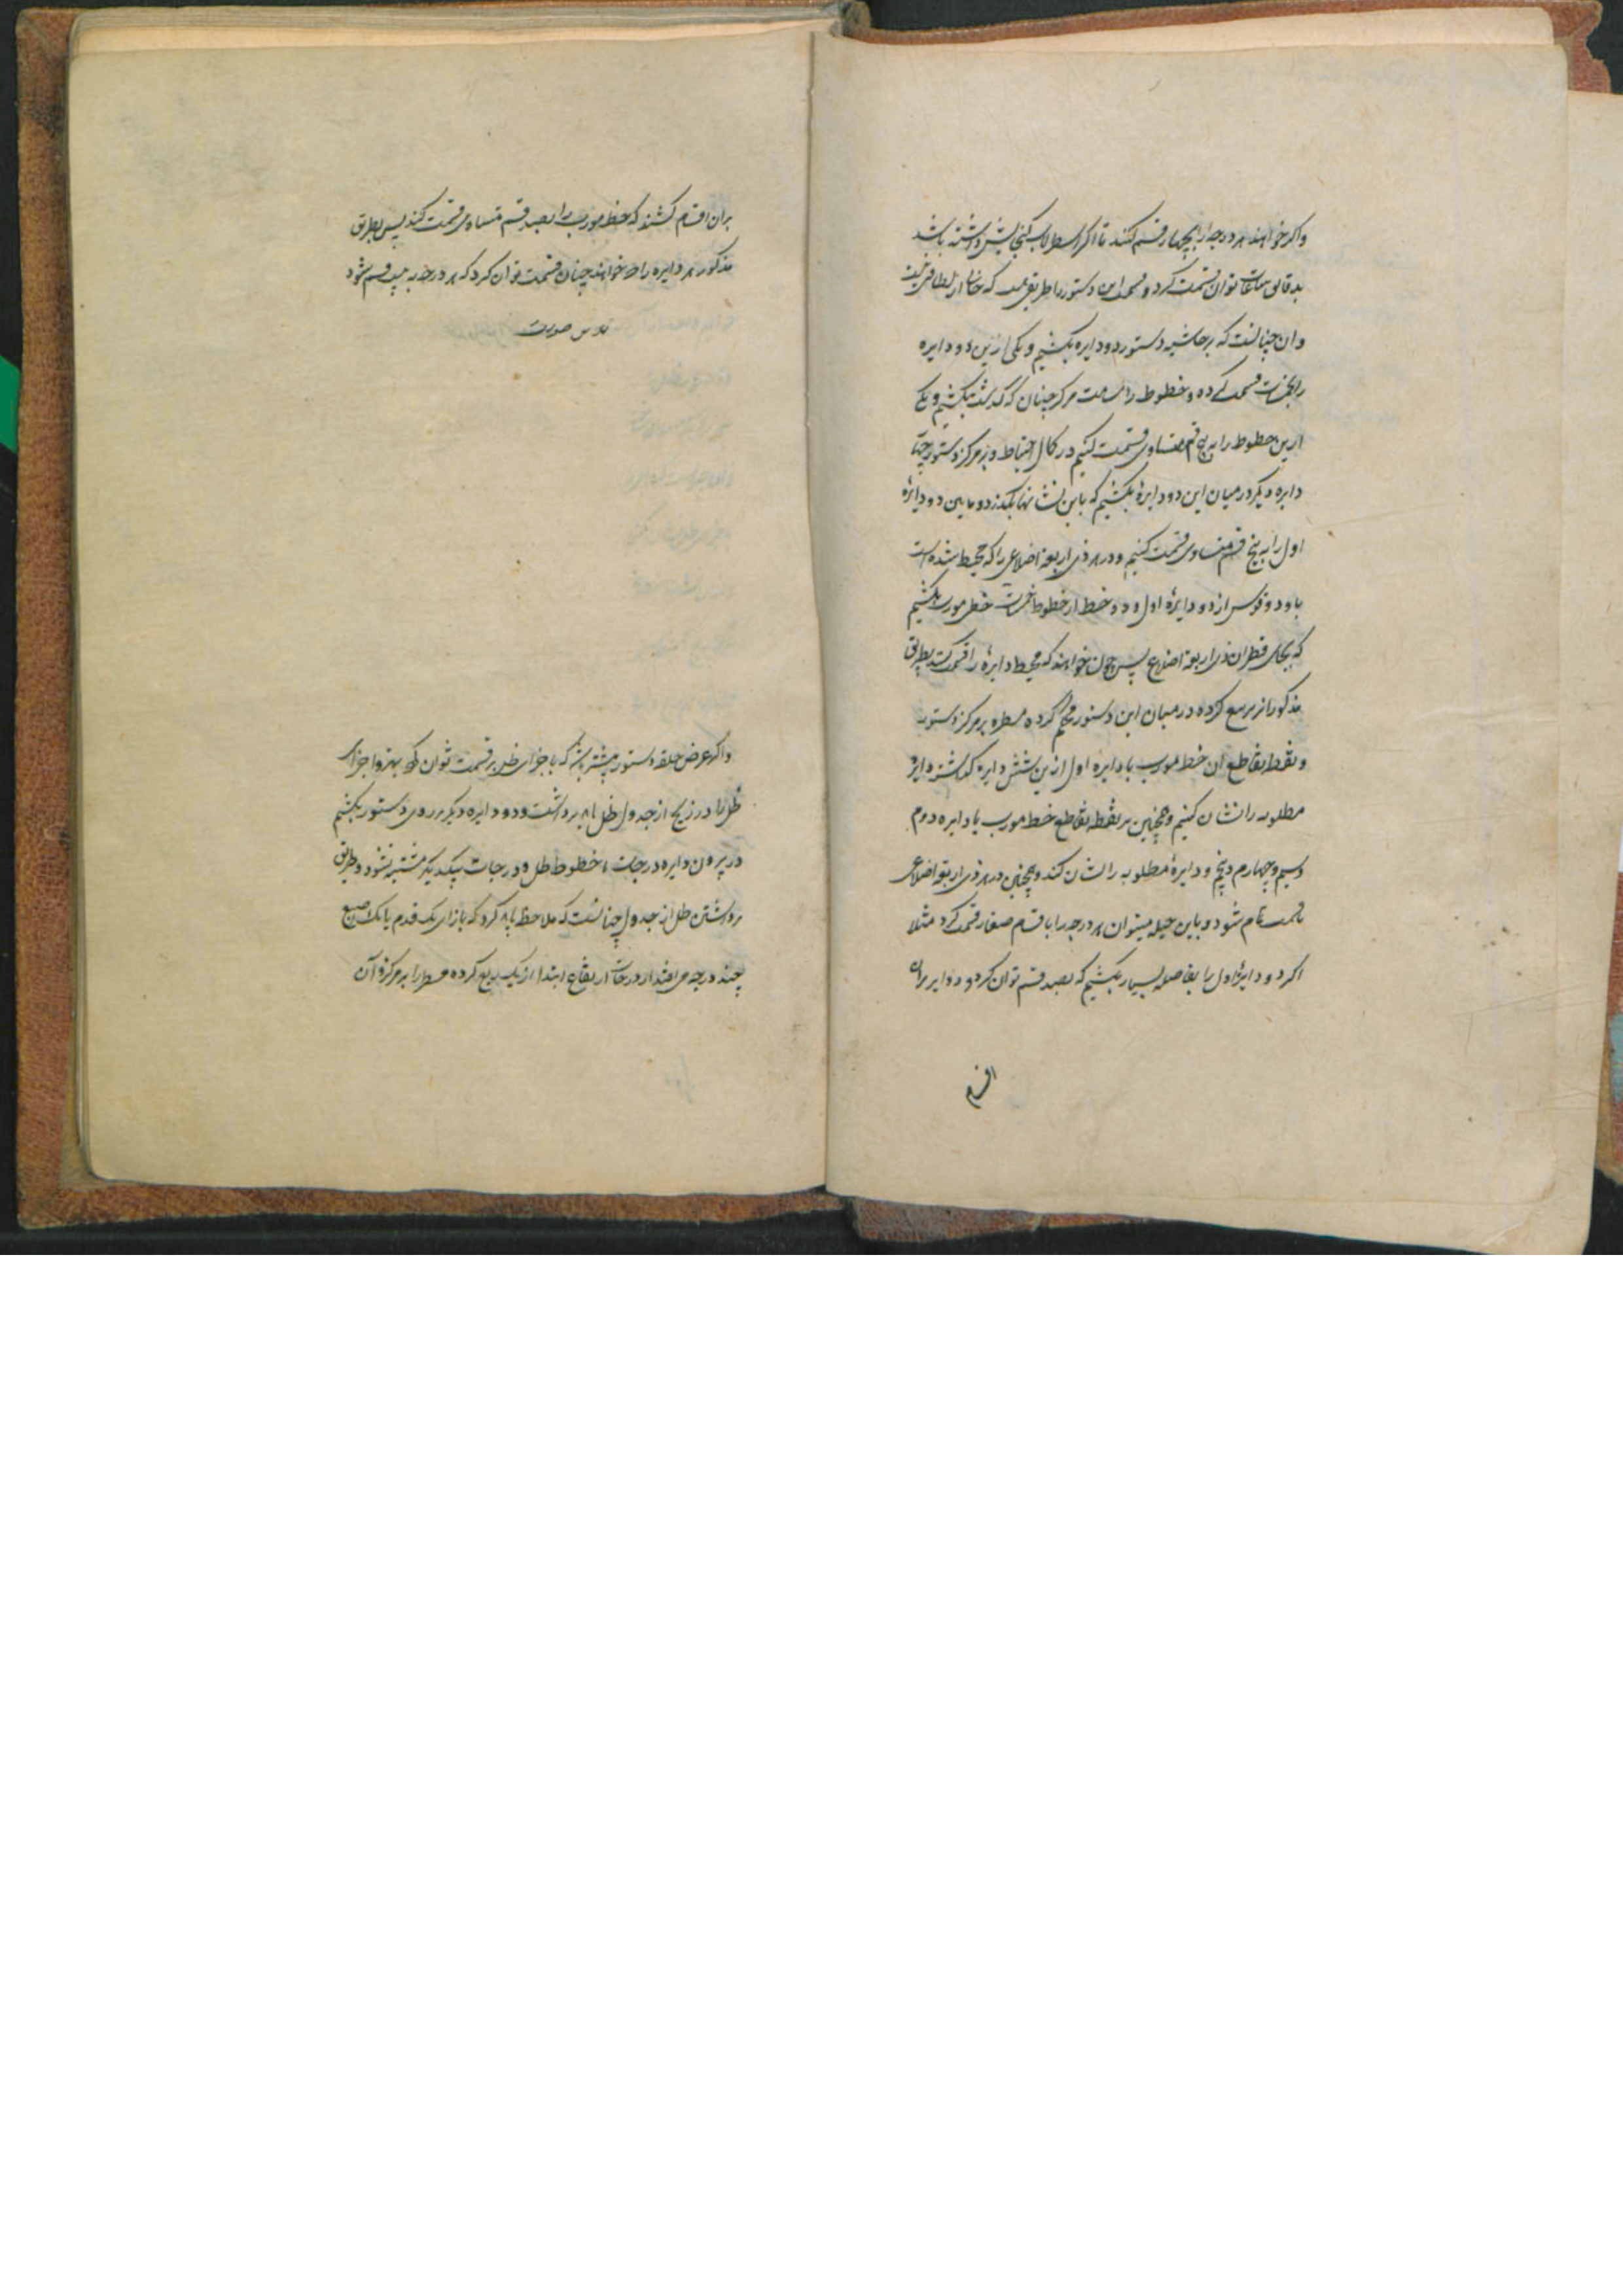 واکر خواهند هر درجه را بچهار قسم کنند تا اکر اسطرلاب کنجایش داشته باشد
توان قسمت کرد و قسمت این دستور را طریقی است که خالی از لطافتی نیست
و ان چنانست که بر حاشیه دستور دو دایره بکشیم و یکی ازین دو دایره
را بخمسات قسمت کرده و خطوط را بسمت مرکز چنان که کذشت بکشیم و یکی
ازین خطوط را به پنج قسم متساوی قسمت کنیم در کمال احتیاط و بر مرکز دستور چهار
دایره دیکر در میان این دو دایره بکشیم که باین نشانها بکذرد و مابین دو دایره
اول را به پنج قسم متساوی قسمت کنیم و در هر ذی اربعة اضلاعی را که محیط شده است
باو دو قوس از دو دایره اول و دو خط از خطوط خمسات خطی مورب بکشیم
که بجای قطر ان ذی اربعة اضلاع پس چون خواهند که محیط دایره را قسمت کنند بطریق
مذکور از مربع کرده در میان این دستور محکم کرده مسطره بر مرکز دستور
و نقطه تقاطع ان خط مورب با دایره اول ازین شش دایره کذاشته دایره
مطلوبه را نشان کنیم و همچنین بر نقطه تقاطع خط مورب با دایره دوم
و سیم و چهارم و پنجم و دایره مطلوبه را نشان کند و همچنین در هر ذی اربعة اضلاعی
تا قسمت تمام شود و باین حیله میتوان هر درجه را باقسام صغار قسمت کرد مثلا
اکر دو دایره اول را بفاصله بسیار بکشیم که بصد قسم توان کرد و دوایر بران
اقسام
بران اقسام کشند که خط مورب را بصد قسم متساوی قسمت کند پس بطریق
مذکور هر دایره را که خواهند چنان قسمت توان کرد که هر درجه به بیست قسم شود
بدین صورت
واکر عرض حلقه دستور بیشتر باشد که باجزای ظل نیز قسمت توان کرد بهتر و اجزای
ظل را در زیج از جدول ظل باید برداشت و دو دایره دیکر بر روی دستور بکشیم
در بیرون دایره درجات تا خطوط ظل و درجات بیکدیکر مشتبه نشود و طریق
برداشتن ظل از جدول چنانست که ملاحظه باید کرد که بازای یک قدم یا یک اصبع
چند درجه می افتد از درجات ارتفاع ابتدا از یک ربع کرده مسطر را بر مرکز و آن